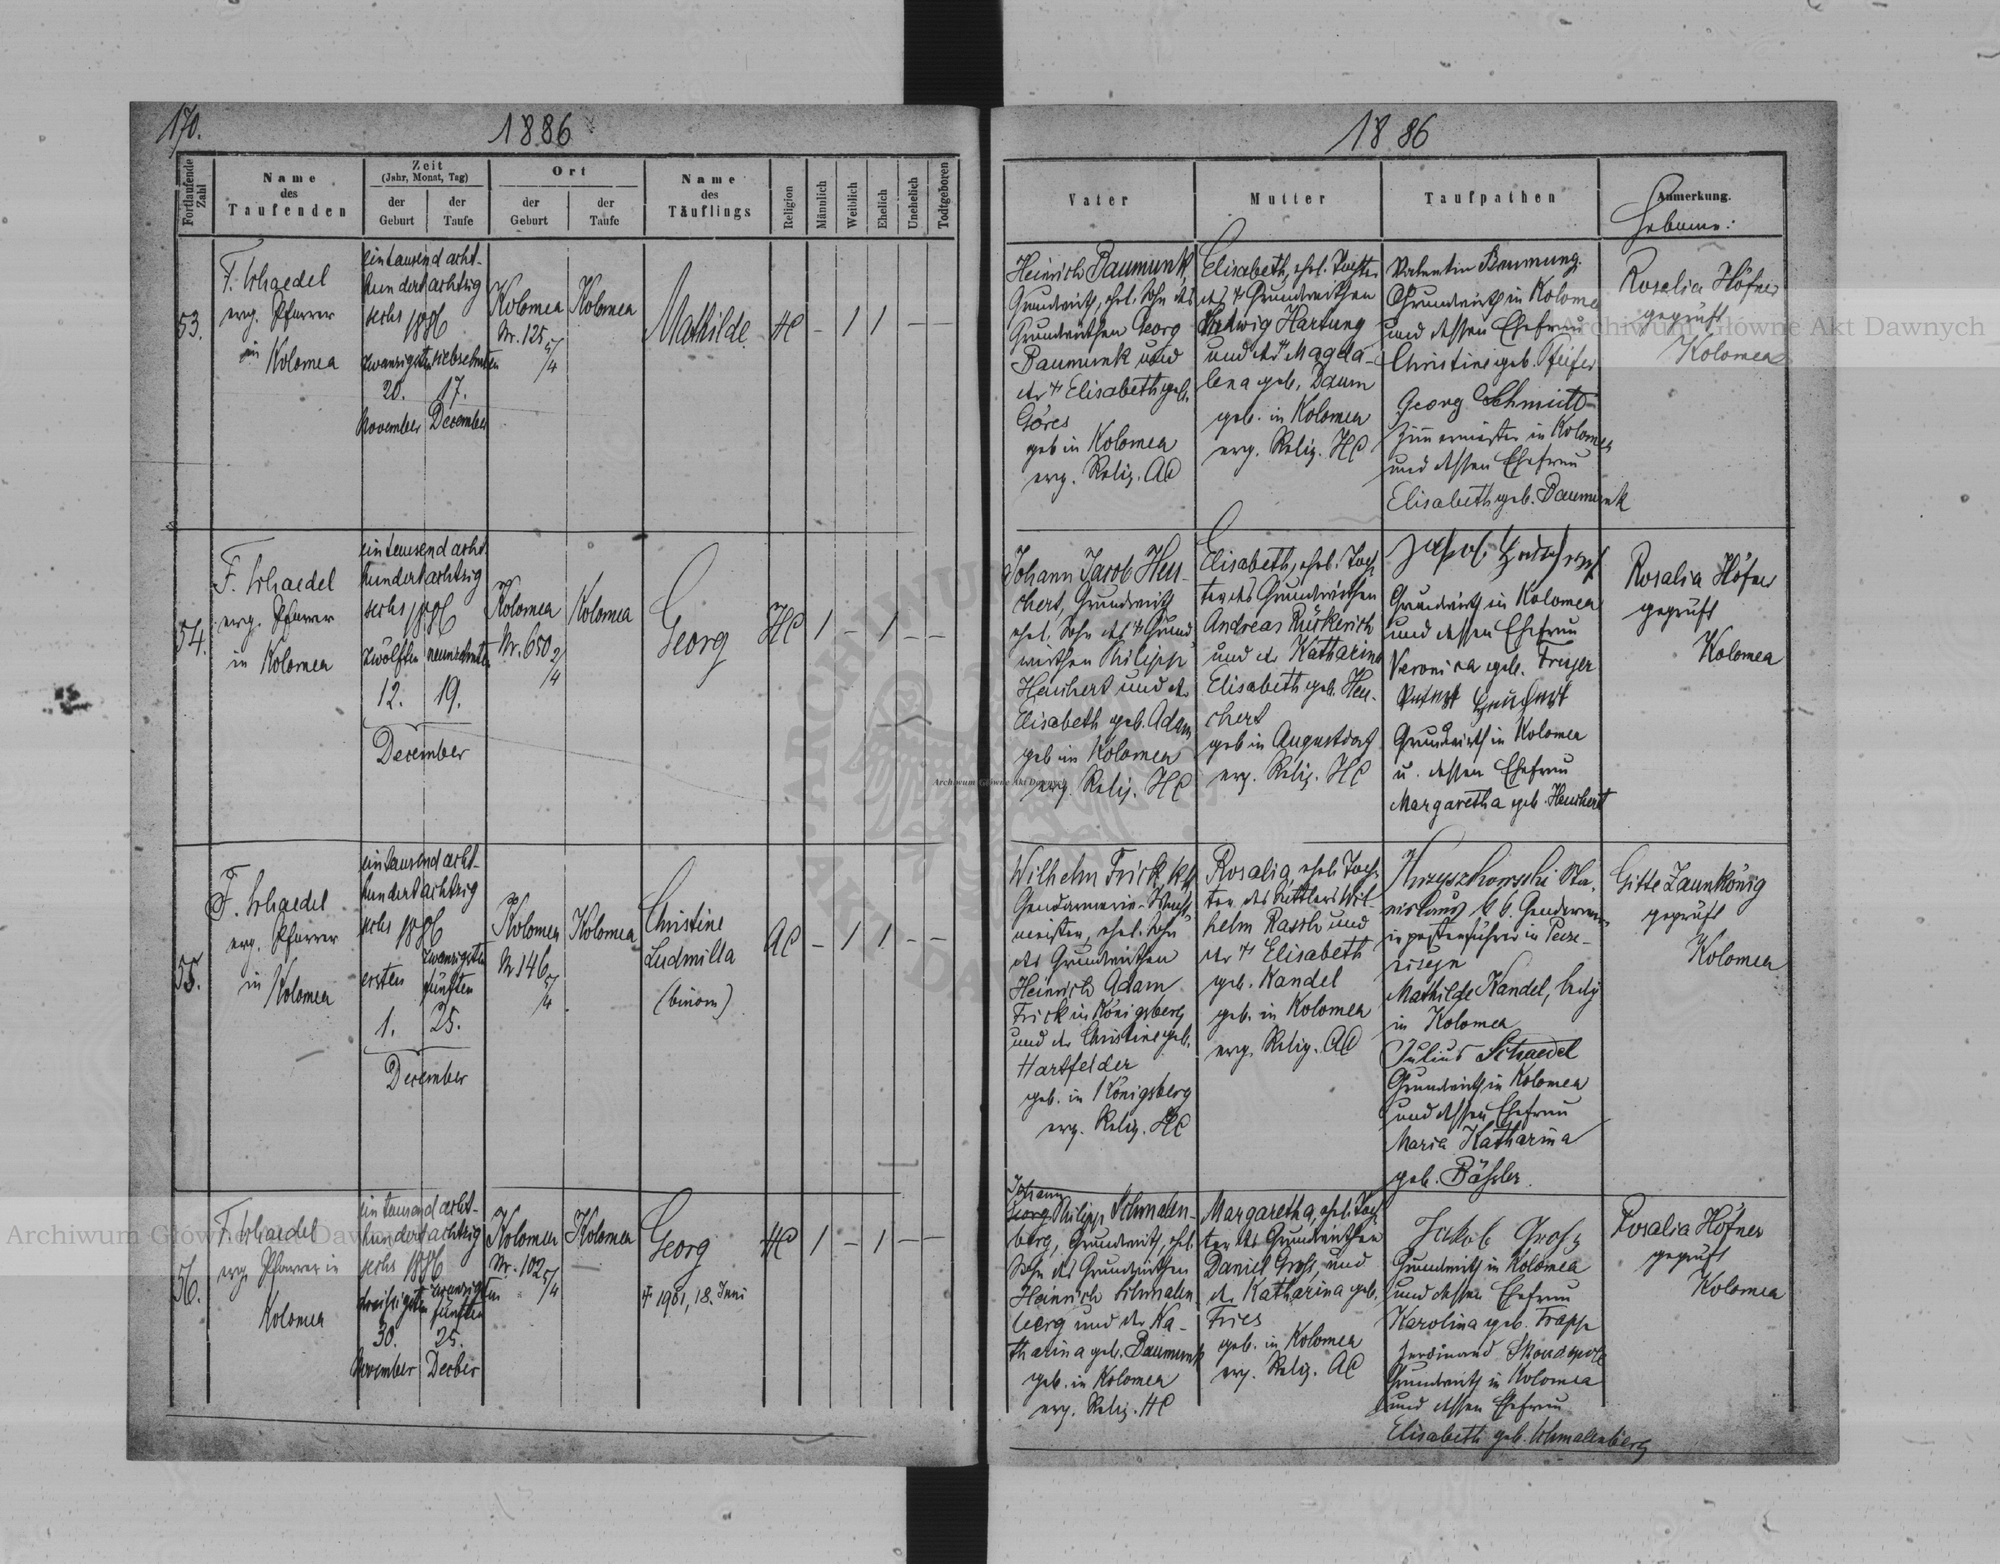 170.
1886
1886
Fortlaufende Zahl
Name
des
Taufenden
Zeit
(Jahr, Monat, Tag)
der Geburt
der Taufe
Ort
der Geburt
der Taufe
Name
des
Täuflings
Religion
Männlich
Weiblich
Ehelich
Unehelich
Todtgeboren
Vater
Mutter
Taufpathen
Anmerkung.
Hebamme:
53.
F. Schaedel
evg. Pfarrer
in
Kolomea
ein tausend acht-
hundert achtzig
sechs 1886
zwanzigsten siebzehnten
20. 17.
November December
Kolomea
Nr. 125 5/4
Kolomea
Mathilde
HC
– 1 1 – –
Heinrich Baumunk
Grundwirth, ehel. Sohn des
Grundwirthen Georg
Baumunk und
der + Elisabeth geb.
Göres
geb in Kolomea
evg. Relig. AC
Elisabeth, ehel. Tochter
des + Grundwirthen
Ludwig Hartung
und der + Magda-
lena geb. Daum
geb. in Kolomea
evg. Relig. HC
Valentin Baumung
Grundwirth in Kolomea
und dessen Ehefrau
Christine geb. Pfeifer
Georg Schmidt
Zimermeister in Kolomea
und dessen Ehefrau
Elisabeth geb. Baumunk
Rosalia Höfner
geprüft
Kolomea
54.
F. Schaedel
evg. Pfarrer
in Kolomea
ein tausend acht-
hundert achtzig
sechs 1886
zwölften neunzehnten
12. 19.
December
Kolomea
Nr. 650 2/4
Kolomea
Georg
HC
1 – 1 – –
Johann Jacob Heu-
chert, Grundwirth
ehel. Sohn des + Grund
wirthen Philipp
Heuchert und der
Elisabeth geb. Adam
geb in Kolomea
evg. Relig. HC
Elisabeth, ehel. Toch
ter des Grundwirthen
Andreas Rückerich
und der Katharina
Elisabeth geb. Heu-
chert
geb in Augustdorf
evg. Relig. HC
Jakob
Grundwirth in Kolomea
und dessen Ehefrau
Veronica geb.
Grundwirth in Kolomea
u. dessen Ehefrau
Margaretha geb. Heuchert
Rosalia Höfner
geprüft
Kolomea
55.
F. Schaedel
evg. Pfarrer
in
Kolomea
ein tausend acht-
hundert achtzig
sechs 1886
ersten zwanzigsten fünften
1. 25.
December
Kolomea
Nr 146 5/4
Kolomea
Christine
Ludmilla
(binom)
AC
– 1 1 – –
Wilhelm Frick, kk
Gendarmerie-Wacht-
meister, ehel. Sohn
des Grundwirthen
Heinrich Adam
Frick in Königsberg
und der Christine geb.
Hartfelder
geb. in Königsberg
evg. Relig. HC
Rosalia, ehel. Toch-
ter des Sattlers Wil-
helm Rasch und
der + Elisabeth
geb. Kandel
geb. in Kolomea
evg. Relig. AC
Krzyszkowski Sta-
nislaus k. k. Gendarmerie
postenführer in
Mathilde Kandel, ledig
in Kolomea
Julius Schaedel
Grundwirth in Kolomea
und dessen Ehefrau
Maria Katharina
geb. Bäszler.
Gitte Zaunkönig
geprüft
Kolomea
56.
F. Schaedel
evg. Pfarrer in
Kolomea
ein tausend acht-
hundert achtzig
sechs 1886
dreissigsten zwanzigsten fünften
30. 25.
November Decber
Kolomea
Nr. 102 5/4
Kolomea
Georg
+ 1901, 18. Juni
HC
1 – 1 – –
Johann
Georg Philipp Schmalen-
berg, Grundwirth, ehel.
Sohn des Grundwirthen
Heinrich Schmalen
berg und der Ka-
tharina geb. Baumunk
geb. in Kolomea
evg. Relig. HC
Margaretha, ehel. Toch
ter des Grundwirthen
Daniel Grosz, und
der Katharina geb.
Fries
geb. in Kolomea
evg. Relig. AC
Jakob Grosz
Grundwirth in Kolomea
und dessen Ehefrau
Karolina geb. Trapp
Ferdinand
Grundwirth in Kolomea
und dessen Ehefrau
Elisabeth geb. Schmalenberg
Rosalia Höfner
geprüft
Kolomea
Archiwum Główne Akt Dawnych
Archiwum Główne Akt Dawnych
Archiwum Główne Akt Dawnych